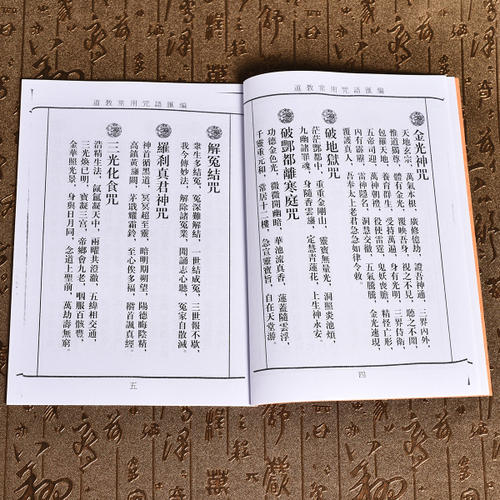 道教常用咒語匯編
金光神咒
天地玄宗，萬氣本根，廣修億劫，證吾神通，三界內外，
惟道獨尊，體有金光，覆映吾身，視之不見，聽之不聞，
包羅天地，養育群生，受持萬遍，身有光明，三界侍衛，
五帝司迎，萬神朝禮，役使雷霆，鬼妖喪膽，精怪亡形，
內有霹靂，雷神隱名，洞慧交徹，五氣騰騰，金光速現，
覆護真人，吾奉太上老君急急如律令敕。
破地獄咒
茫茫酆都中，重重金剛山，靈寶無量光，洞照炎池煩，
九幽諸罪魂，身隨香雲旛，定慧青蓮花，上生神永安。
破酆都離寒庭咒
功德金色光，微微開幽暗，華池流真香，蓮蓋隨雲浮，
千靈重元和，常居十二樓，急宣靈寶旨，自在天堂遊。
四
道教常用咒語匯編
解冤結咒
衆生多結冤，冤深難解結，一世結成冤，三世報不歇，
我今傳妙法，解除諸冤業，聞誦志心聽，冤家自散滅。
羅剎真君神咒
神首循黑道，冥冥超至靈，暗明期朔望，陽德晦陰精，
高鎮黃旛闕，茅戟耀霜鈴，至心俟多福，稽首誦真經。
三光化食咒
浩精生法，氤氳凝天中，兩曜共澄澈，五緯相交通，
三光煥已明，寶凝三宮，帝鄉會九老，咽服百骸豐，
金華照光景，身與日月同，念道上聖前，萬劫壽無窮。
五